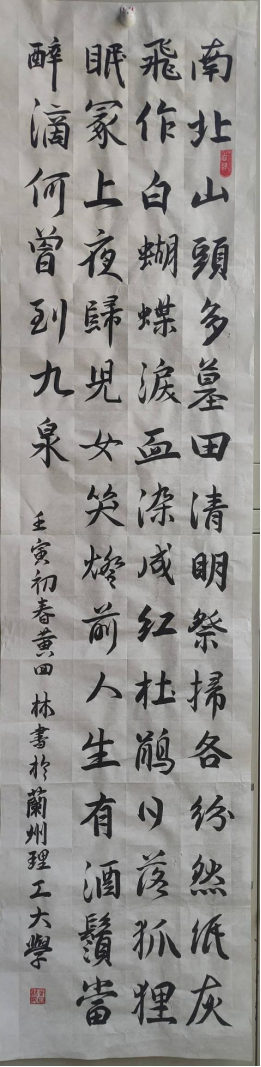 南北山頭多墓田清明祭掃各紛然纸灰
飛作白蝴蝶淚血染成红杜鹃日落狐狸
眠冢上夜歸兒女笑燈前人生有酒須當
醉滴何曾到九泉
壬寅初春黄田林書於蘭州理工大學